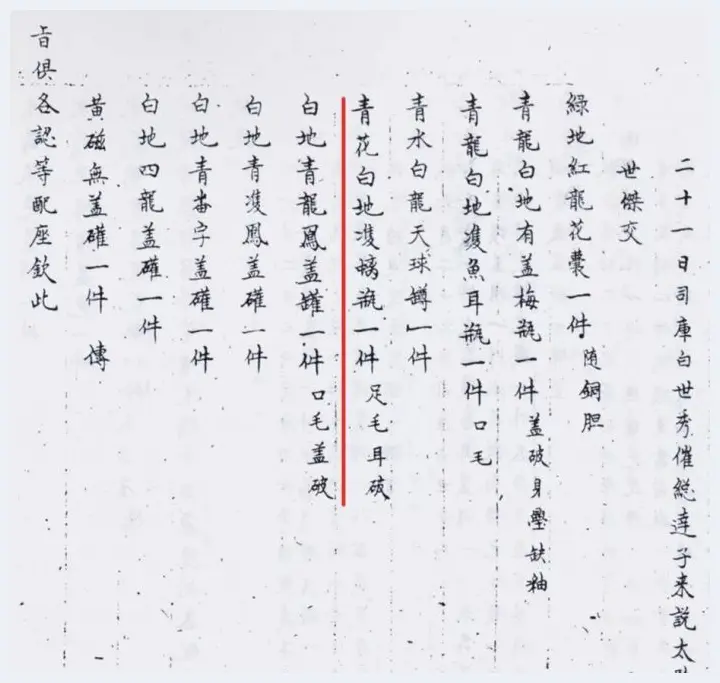 二十一日司庫白世秀催總達子来説太
世傑交
綠地紅龍花囊一件 随銅胆
青龍白地有盖梅瓶一件 盖破身璺缺釉
青龍白地雙魚耳瓶一件 口毛
青水白龍天球罇一件
青花白地雙螭瓶一件 足毛耳破
白地青龍鳳盖罐一件 口毛盖破
白地青雙鳳盖礶一件
白地青番字盖礶一件
白地四龍盖礶一件
黃磁無盖礶一件 傳
旨俱各認等配座欽此